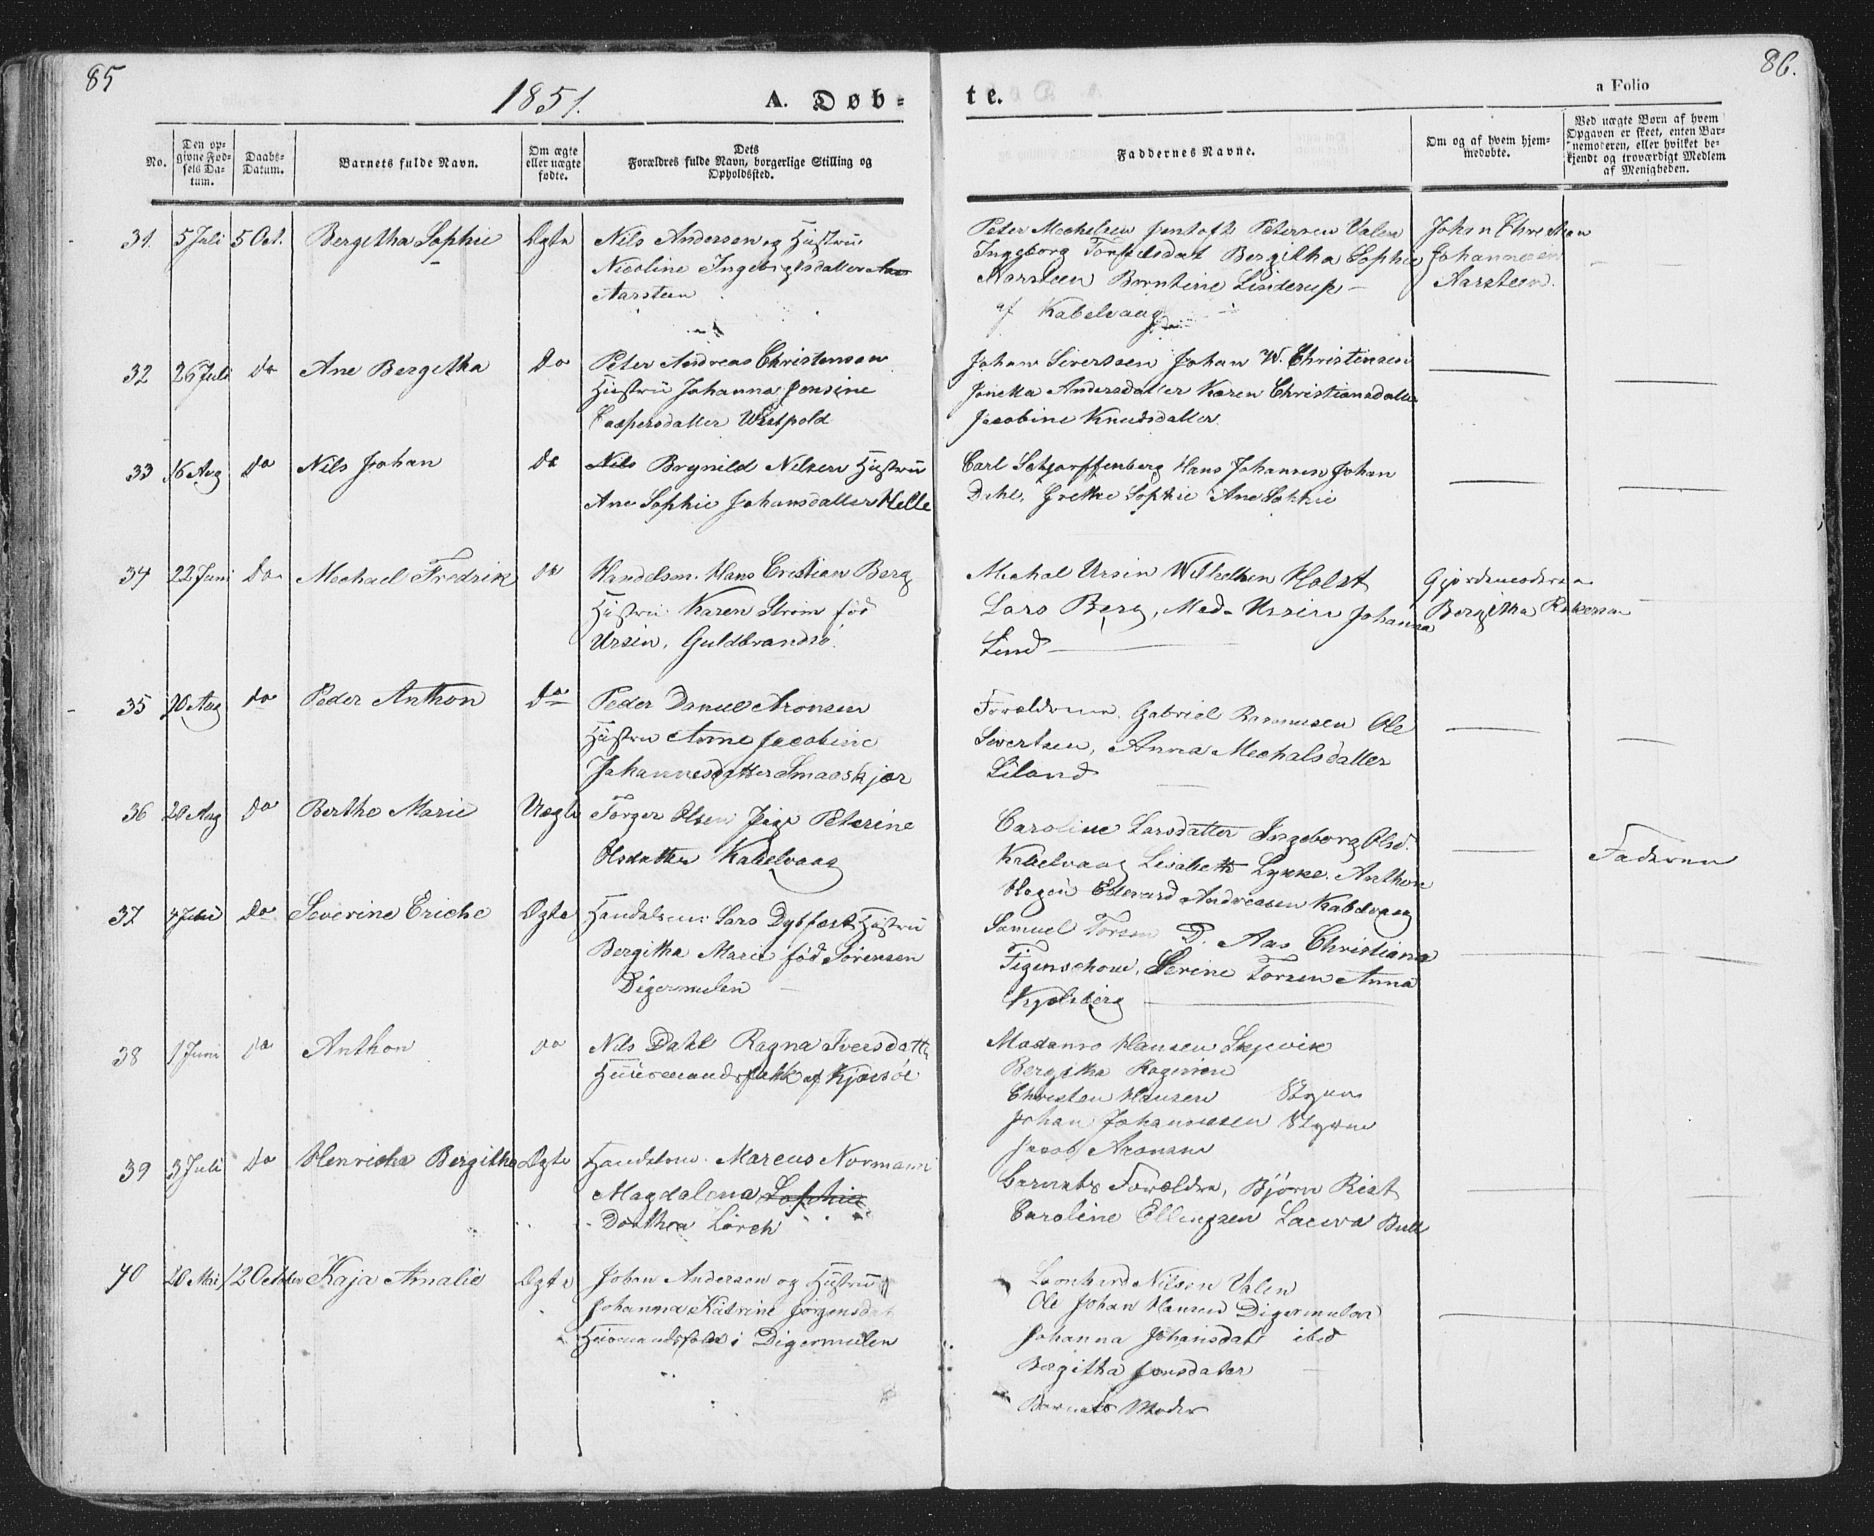 85
1851.
A. Døb-
te.
86.
a Folio
No.
Den op-
givne Fød-
sels Da-
tum.
Daabs-
Datum.
Barnets fulde Navn.
Om ægte
eller uægte
fødte.
Dets
Forældres fulde Navn, borgerlige Stilling og
Opholdssted.
Faddernes Navne.
Om og af hvem hjem-
medøbte.
Ved uægte Børn af hvem
Opgaven er skeet, enten Bar-
nemoderen, eller hvilket be-
kjendt og troværdigt Medlem
af Menigheden.
31. 5 Juli 5 Oct. Bergitha Sophie Ægte Nils Andersen og Hustru
Nicoline Ingebrigtsdatter
Aarsteen
Peter Mechelsen Jentoft Petersen Valen
Ingeborg Torkelsdat Bergitha Sophie
Aarsteen Borntine Linderup
af Kabelvaag
Johan Christian
Johannesen
Aarsteen.
32 26 Juli Do Ane Bergitha Do Peter Andreas Christensen
Hustru Johanna Jensine
Caspersdatter Westpold
Johan Sivertsen Johan W. Christensen
Jonetta Andersdatter Karen Christiansdatter
Jacobine Knudsdatter
33 16 Aug Do Nils Johan Do Nils Brynild Nilsen Hustru
Ane Sophie Johansdatter Helle
Carl Schjorffenberg Hans Johansen Johan
Dahl, Grethe Sophie Ane Sophie
34 22 Juni Do Mechael Fredrik do Handelsm. Hans Cristian Berg
Hustru Karen Strøm fød
Ursin, Guldbrandsø.
Mechal Ursin Wilhelhm Holst
Lars Berg, Mad. Ursin Johanna
Lind
Gjordemoderen
Bergitha
35 20 Aug do Peder Anthon Do Peder Daniel Aronsen
Hustru Anne Jacobine
Johannesdatter Smaaskjær
Forældrene, Gabriel Rasmusen Ole
Sivertsen, Anna Mechalsdatter
Liland
36 20 Aug Do Berthe Marie Uægte Torger Olsen Pige Peterine
Olsdatter Kabelvaag
Caroline Larsdatter Ingeborg Olsd.
Kabelvaag Lisabeth Lykke. Anthon
Hagen Edevard Andreasen Kabelvaag
Faderen
37 Do Severine Eriche Ægte Handelsm: Lars Dybfest Hustru
Bergitha Marie fød Sørensen
Digermulen
Samuel Torsen D. Aas Christiana
Figenschou, Serine Torsen Anna
Kjølsberg
38 1 Juni do Anthon do Nils Dahl Ragna Iversdatter
Huusmandsfolk af Kjærsøe
Madame Hansen Skjevik
Bergitha
Christen Hansen Styrvo
Johan Johannesen Styrvo
Jacob Aronsen
39 3 Juli Do Henricha Bergitha Ægte Handelsm. Marcus Normann
Magdalena Sophie
Dorthea Lorch
Barnets Forældre, Bjørn Rist
Caroline Ellingsen Laurva Bull
40 20 Mai 12 October Kaja Amalie Ægte Johan Andersen og Hustru
Johanna Katrine Jørgensdat
Huusmandsfolk i Digermulen
Leonhard Nilsen Valen
Ole Johan Hansen Digermulen
Johanna Johansdat ibid
Bergitha Jonsdater
Barnets Moder